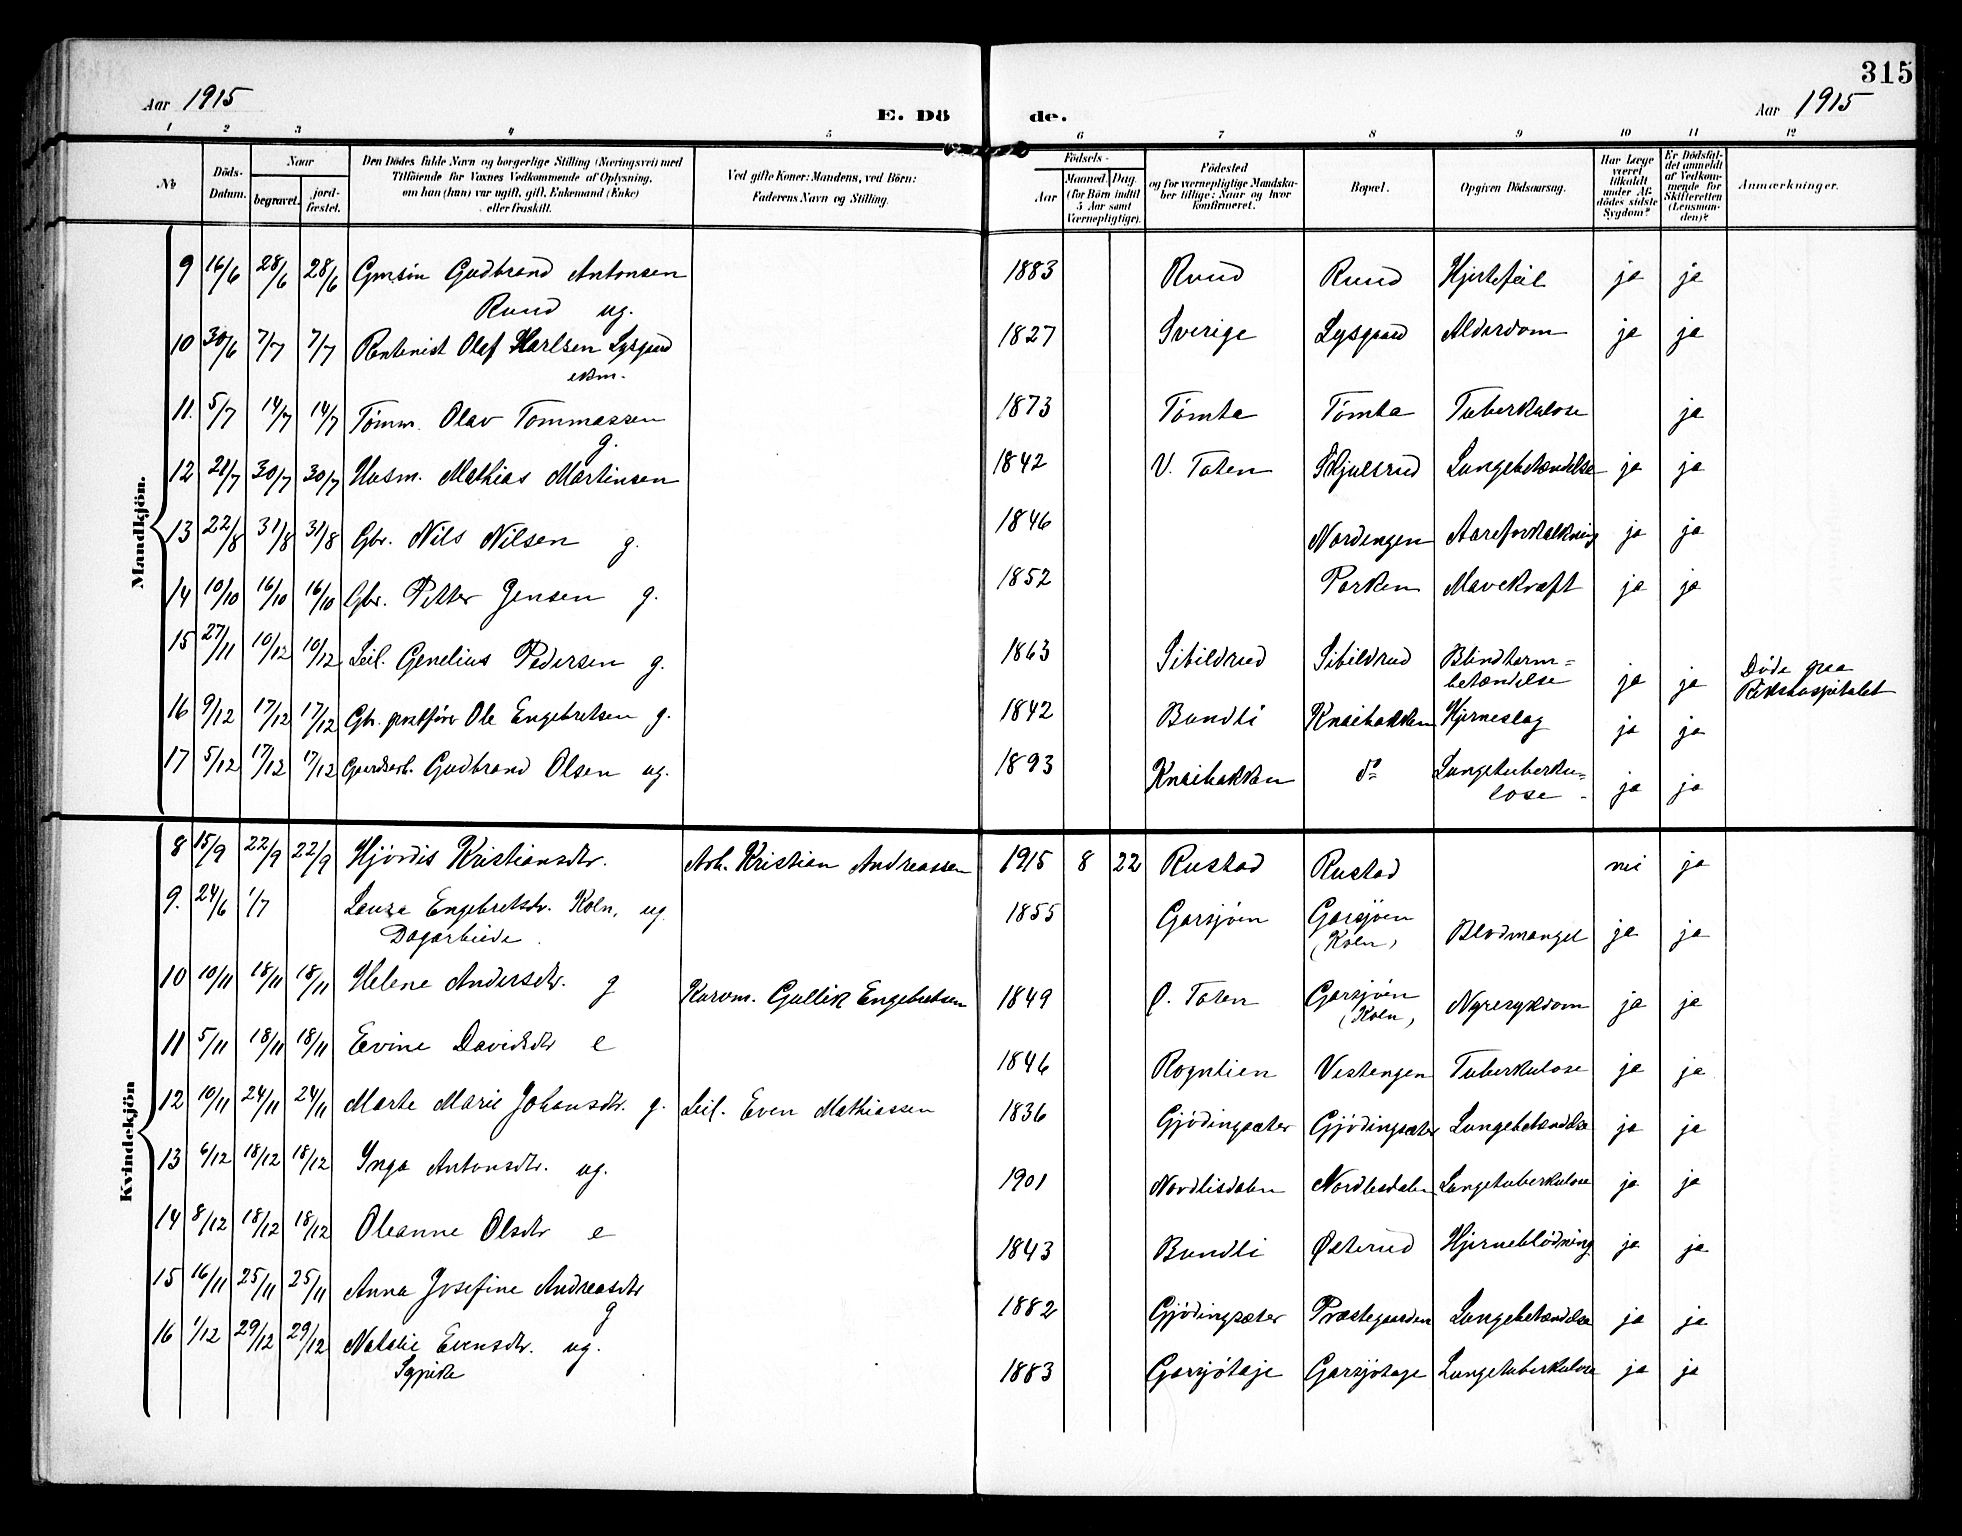 315
Aar 1915
E. Dö de.
Aar 1915
1 2 3 4 5 6 7 8 9 10 11 12
No
Döds-Datum.
Naar
begravet.
jord-fæstet.
Den Dödes fulde Navn og borgerlige Stilling (Næringsvei) med
Tilføiende for Voxnes Vedkommende af Oplysning,
om han (hun) var ugift, gift, Enkemand (Enke)
eller fraskilt.
Ved gifte Koner: Mandens, ved Börn:
Faderens Navn og Stilling.
Födsels-
Aar
Maaned. Dag.
(for Börn indtil
5 Aar samt
Værnepligtige).
Födested
og for værnepligtige Mandska-
ber tillige: Naar og hvor
konfirmeret.
Bopæl.
Opgiven Dödsaarsag.
Har Læge
været
tilkaldt
under Af-
dödes sidste
Sygdom?
Er Dödsfal-
det anmeldt
af Vedkom-
mende for
Skifteretten
(Lensman-
den)?
Anmærkninger.
Mandkjön.
9 16/6 28/6 28/6 Gmsön Gudbrand Antonsen 1883 Ruud Ruud Hjertefeil ja ja
Ruud ug.
10 30/6 7/7 7/7 Rentenist Olaf Karlsen Lysgaard 1827 Sverige Lysgaard Alderdom ja ja
ekm.
11. 5/7 14/7 14/7 Tömm. Olav Tommassen 1873 Tömta Tömta Tuberkulose ja
g.
12 21/7 30/7 30/7 Husm. Mathias Martinsen 1842 V. Toten Skjulsrud Lungebetændelse ja ja
13 22/8 31/8 31/8 Gbr. Nils Nilsen g. 1846 Nordengen Aareforkalkning ja ja
14 10/10 16/10 16/10 Gbr. Petter Jensen g. 1852 Parken Mavekræft ja ja
15 27/11 10/12 10/12 Leil. Genelius Pedersen g. 1863 Sibildrud Sibildrud Blindtarm=
betændelse ja ja Döde paa
Rikshospitalet
16 9/12 17/12 17/12 Gbr. postförer Ole Engebretsen g. 1842 Bundli Knaibakken Hjerneslag ja ja
17 5/12 17/12 17/12 Gaardsarb. Gudbrand Olsen ug. 1893 Knaibakken do Lungetuberku=
lose - ja ja
Kvindekjön
8 15/9 22/9 22/9 Hjördis Kristiansdtr. Arb. Kristian Andreassen 1915 8 22 Rustad Rustad nei ja
9. 24/6 1/7 Engebretsdr. Koln, ug. 1855 Garsjöen Garsjöen
Dagarbeide (Koln) Blodmangel ja ja
10 10/11 18/11 18/11 Helene Andersdtr. g Kurvm. Gullik Engebretsen 1849 Ø. Toten Garsjöen
(Koln) Nyresygdom ja ja
11 5/11 18/11 18/11 Evine Davidsdtr e 1846 Rognlien Vestengen Tuberkulose ja ja
12 10/11 24/11 24/11 Marte Marie Johansdtr. g. Leil. Even Mathiassen 1836 Gjödingsæter Gjödingsæter Lungebetændelse ja ja
13 6/12 18/12 18/12 Inga Antonsdtr. ug. 1901 Nordlisdalen Nordlisdalen Lungetuberkulose ja ja
14 8/12 18/12 18/12 Oleanne Olsdtr e 1843 Bundli Østerud Hjerneblödning ja ja
15 16/11 25/11 25/11 Anna Josefine Andreasdtr 1882 Gjödingsæter Præstegaarden Lungebetændelse ja ja
g
16 1/12 29/12 29/12 Natalie Evensdtr. ug. 1883 Garsjötaje Garsjötaje Lungetuberkulose ja ja
Sypike